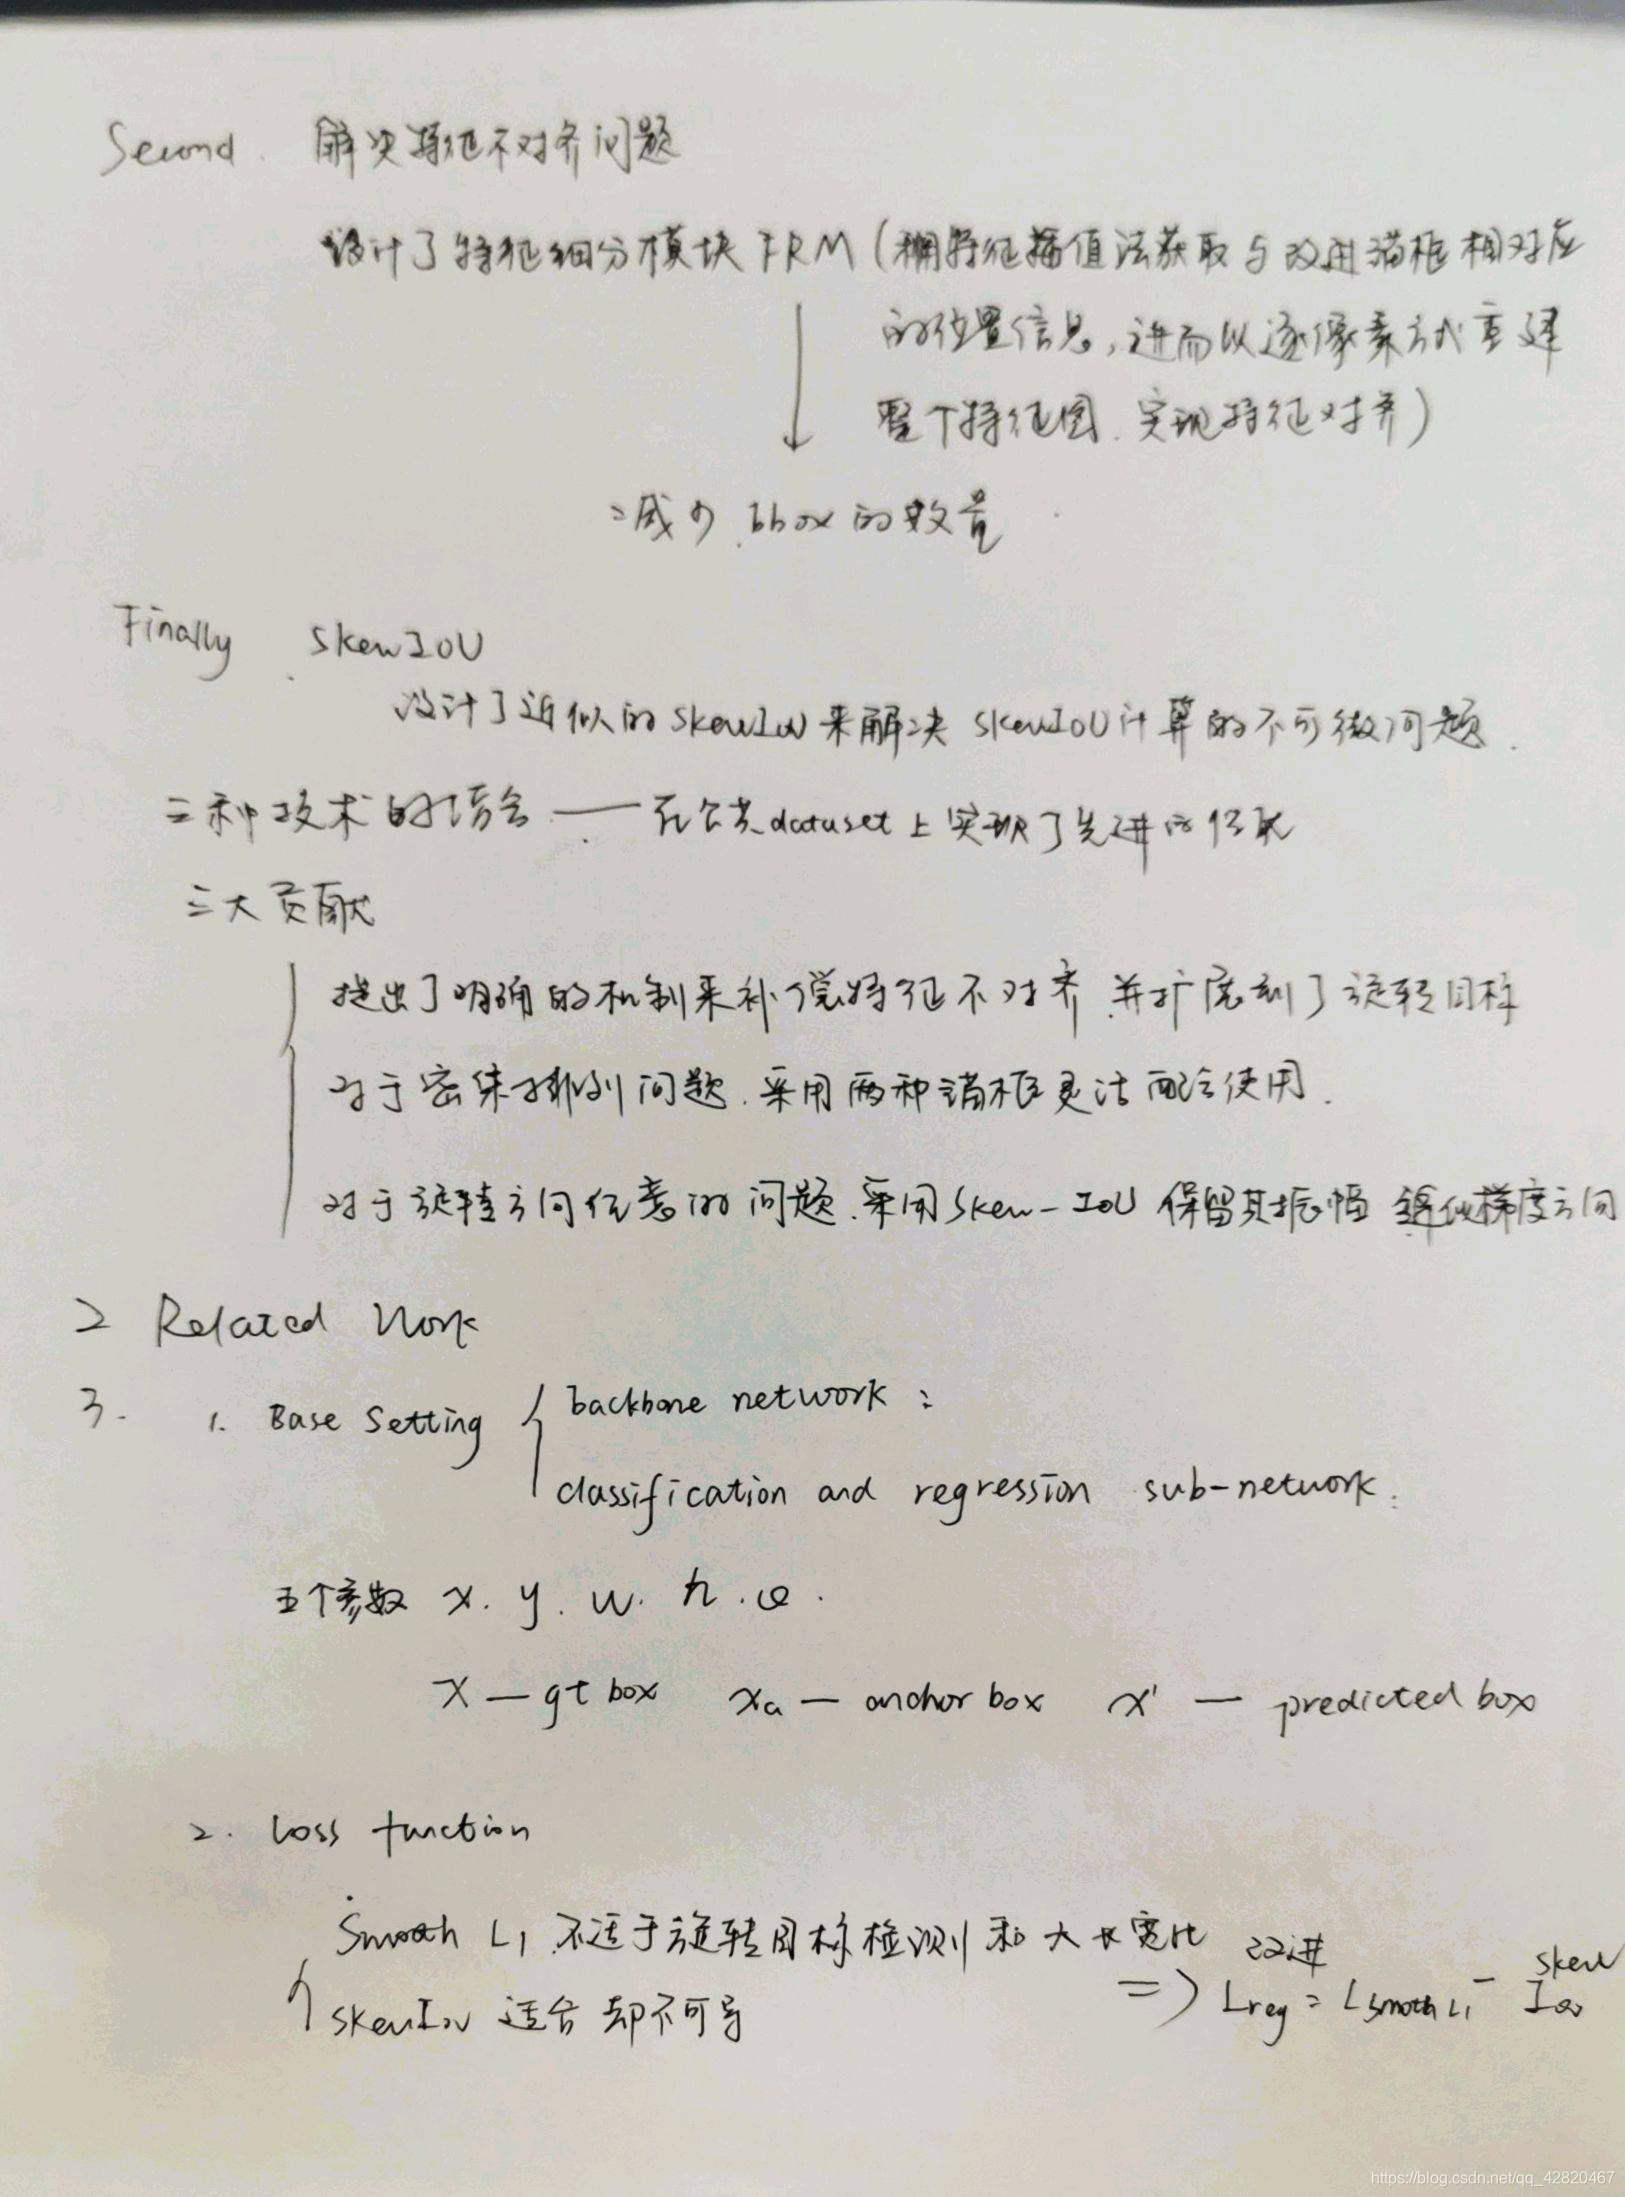 Second. 解决特征不对齐问题
设计了特征细分模块 FRM (用特征插值法获取与改进锚框相对应
的位置信息, 进而以逐像素方式重建
整个特征图. 实现特征对齐)
减少 bbox 的数量
Finally SkewIOU
设计了近似的 SkewIoU 来解决 SkewIOU 计算的不可微问题.
三种技术的结合 —— 在公共 dataset 上实现了先进的
三大贡献
提出了明确的机制来补偿特征不对齐 并扩展到了旋转目标
对于密集排列问题. 采用两种锚框灵活配合使用.
对于旋转方向任意的问题. 采用 Skew-IOU 保留其振幅 梯度方向
2 Related Work
3. 1. Base Setting { backbone network :
classification and regression sub-network:
五个参数 x. y. w. h. θ.
x — gt box xa — anchor box x' — predicted box
2. Loss function
Smooth L1 不适于旋转目标检测和大长宽比
SkewIou 适合 却不可导
改进
=> Lreg = Lsmooth L1 - skew Iou
https://blog.csdn.net/qq_42820467